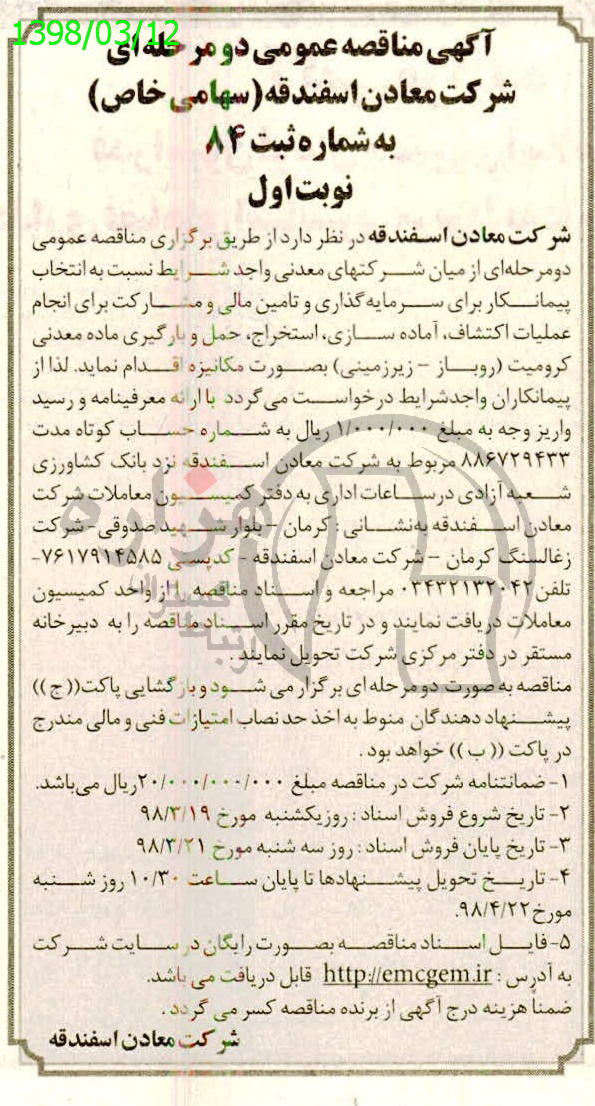 1398/03/12
آگهی مناقصه عمومی دو مرحله ای
شرکت معادن اسفندقه (سهامی خاص)
به شماره ثبت ۸۴
نوبت اول
شرکت معادن اسفندقه در نظر دارد از طریق برگزاری مناقصه عمومی
دومرحله‌ای از میان شرکتهای معدنی واجد شرایط نسبت به انتخاب
پیمانکار برای سرمایه گذاری و تامین مالی و مشارکت برای انجام
عملیات اکتشاف، آماده سازی، استخراج، حمل و بارگیری ماده معدنی
کرومیت (روباز – زیرزمینی) بصورت مکانیزه اقدام نماید. لذا از
پیمانکاران واجدشرایط درخواست می گردد با ارائه معرفینامه و رسید
واریز وجه به مبلغ ۱/۰۰۰/۰۰۰ ریال به شماره حساب کوتاه مدت
۸۸۶۷۲۹۴۳۳ مربوط به شرکت معادن اسفندقه نزد بانک کشاورزی
شعبه آزادی درساعات اداری به دفتر کمیسیون معاملات شرکت
معادن اسفندقه به‌نشانی : کرمان – بلوار شهید صدوقی- شرکت
زغالسنگ کرمان – شرکت معادن اسفندقه - کدپستی ۷۶۱۷۹۱۴۵۸۵-
تلفن۰۳۴۳۲۱۳۲۰۴۲ مراجعه و اسناد مناقصه را از واحد کمیسیون
معاملات دریافت نمایند و در تاریخ مقرر اسناد مناقصه را به دبیرخانه
مستقر در دفتر مرکزی شرکت تحویل نمایند .
مناقصه به صورت دو مرحله ای برگزار می شود و بازگشایی پاکت(( ج ))
پیشنهاد دهندگان منوط به اخذ حد نصاب امتیازات فنی و مالی مندرج
در پاکت (( ب )) خواهد بود .
۱- ضمانتنامه شرکت در مناقصه مبلغ ۲۰/۰۰۰/۰۰۰/۰۰۰ریال می‌باشد.
۲- تاریخ شروع فروش اسناد : روزیکشنبه مورخ ۹۸/۳/۱۹
۳- تاریخ پایان فروش اسناد : روز سه شنبه مورخ ۹۸/۳/۲۱
۴- تاریخ تحویل پیشنهادها تا پایان ساعت ۱۰/۳۰ روز شنبه
مورخ۹۸/۴/۲۲.
۵- فایل اسناد مناقصه بصورت رایگان در سایت شرکت
به آدرس : http://emcgem.ir قابل دریافت می باشد.
ضمناً هزینه درج آگهی از برنده مناقصه کسر می گردد .
شرکت معادن اسفندقه